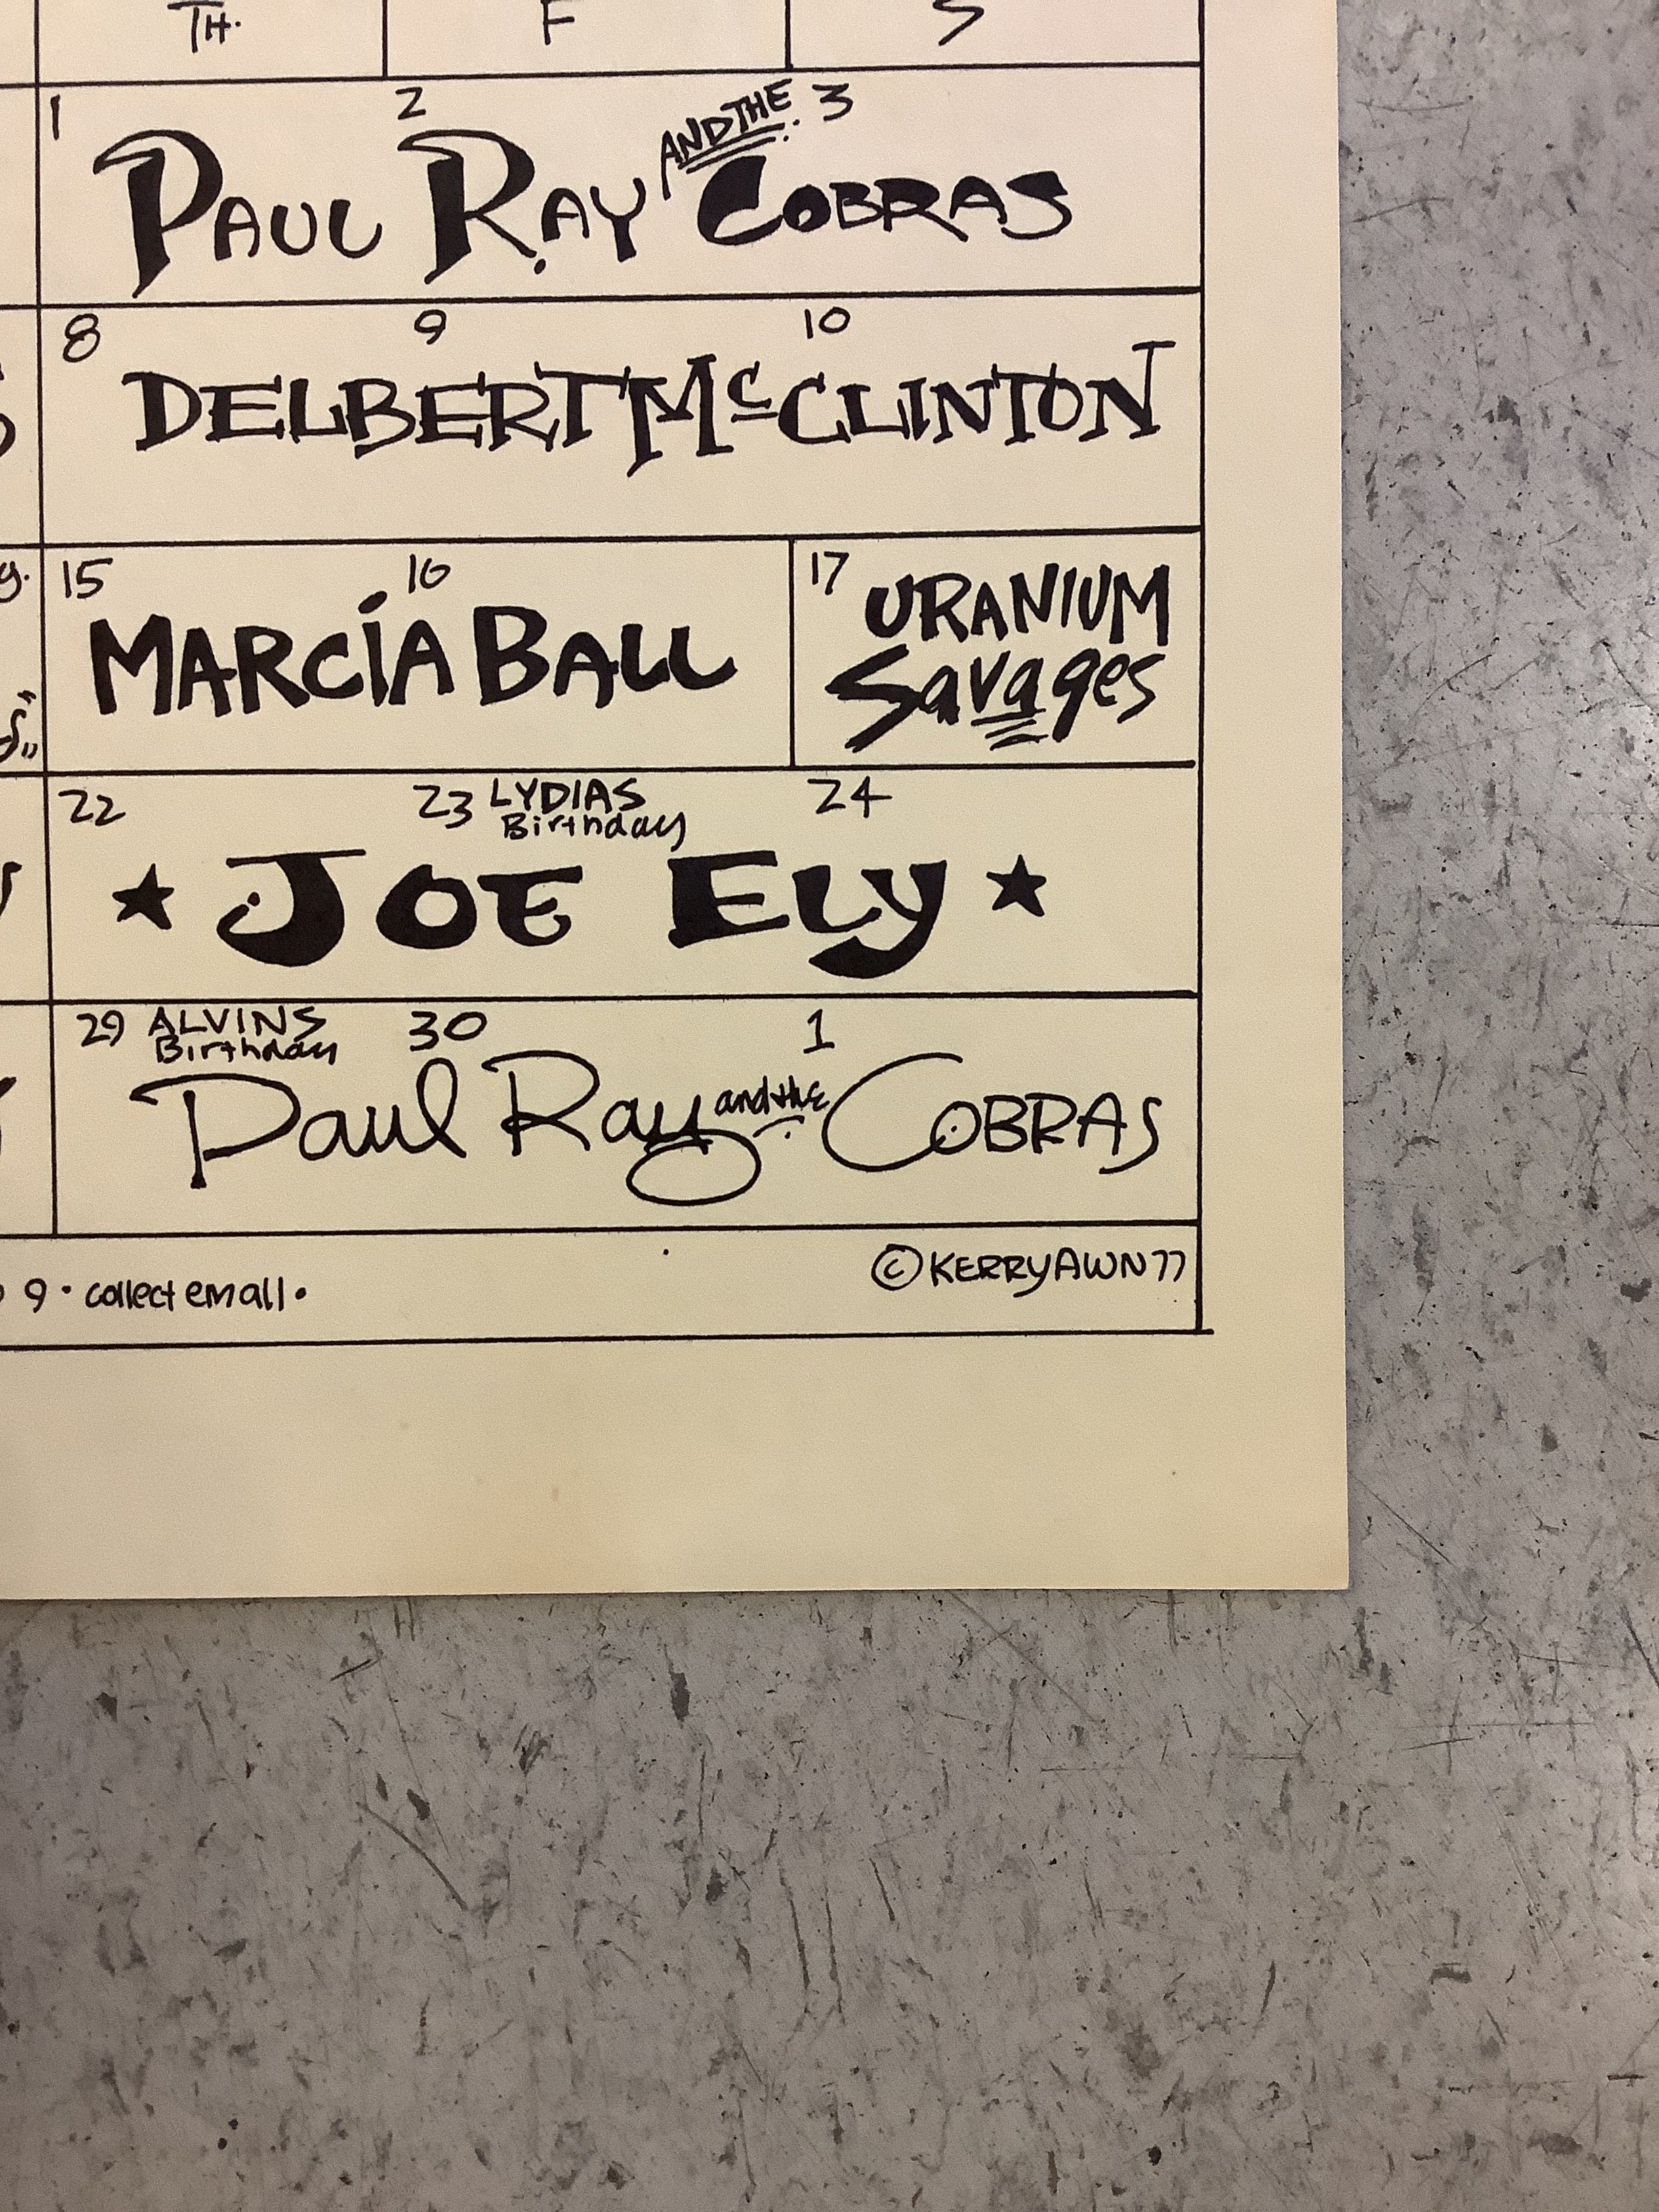 TH. F S
1 2 3
PAUL RAY AND THE COBRAS
8 9 10
DELBERT McCLINTON
15 16 17
MARCIA BALL
URANIUM
Savages
22 23 LYDIAS 24
Birthday
★ JOE ELY ★
29 ALVINS 30 1
Birthday
Paul Ray and the COBRAS
©KERRY AWN 77
9 • collect em all •